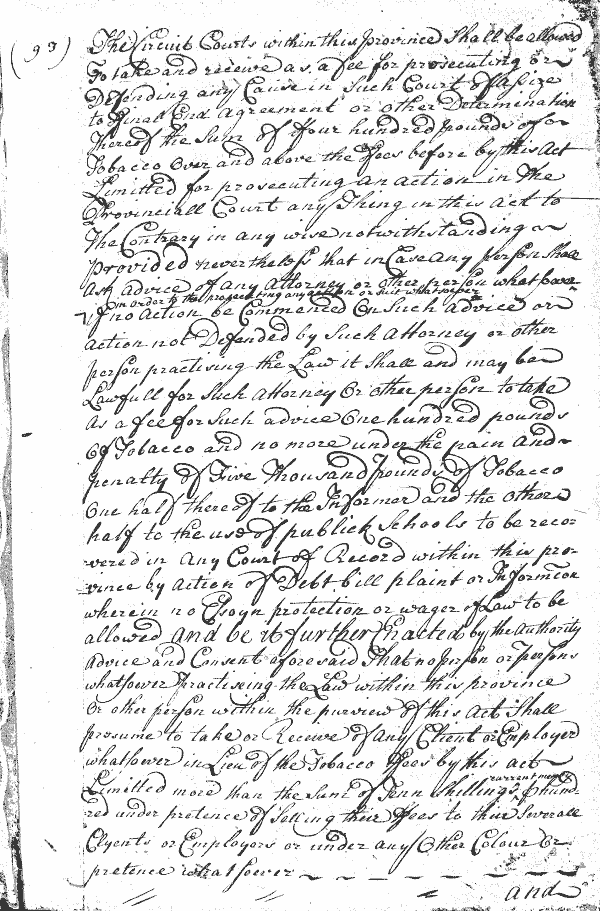 (93)
The Circuit Courts within this province Shall be allowed
To take and receive as a fee for prosecuting or
Defending any Cause in Such Court of Assize
to Finall End Agreement or other Determination
thereof the Sum of Four hundred pounds of
Tobacco Over and above the ffees before by this Act
Limitted for prosecuting an action in the
Provinciall Court any Thing in this act to
The Contrary in any wise notwithstanding
provided nevertheless that in Case any person shall
ask advice of any Attorney or other person whatsoever
in order to the prosecuting any action or suit whatsoever
if no Action be Commenced On Such Advice or
action not Defended by Such Attorney or other
person practising the Law it Shall and may be
Lawfull for Such Attorney Or other person to take
As a fee for Such advice One hundred pounds
Of Tobacco and no more under the pain and
penalty of Five Thousand pounds of Tobacco
One half thereof to the Informer and the other
half to the use of publick Schools to be reco=
vered in any Court of Record within this pro=
vince by action of Debt bill plaint or Informcon
wherein no Esoyn protection or wager of Law to be
allowed And be it further Enacted by the Authority
Advice and Consent aforesaid That no person or persons
whatsoever practiseing the Law within this province
Or other person within the purview of this Act Shall
presume to take or Receive of any Client or Employer
whatsoever in Lieu of the Tobacco ffees by this act
Limitted more than the Sume of Tenn Shillings currant money
P hund=
red under pretence of Selling their ffees to their Severall
Clyents or Employers or under any Other Colour Or
pretence whatsoever
and